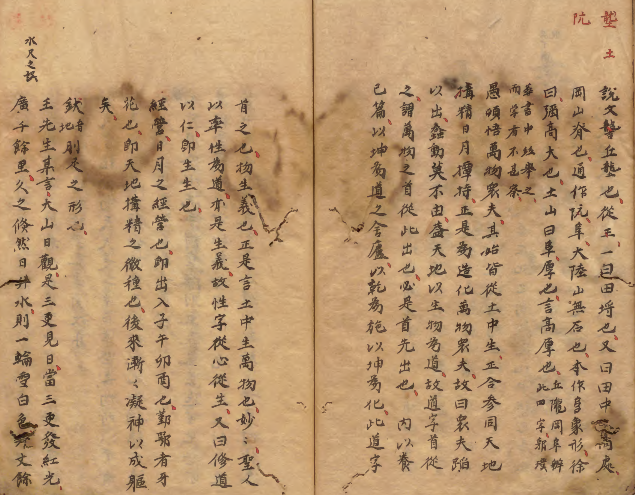 壟 土
阮
說文壟丘壟也從土一曰田埒也又曰田中高處
岡山脊也通作阮阜大陸山無石也本作𨸏象形徐
曰弼高大也土山曰阜厚也言高厚也
丘隴岡阜辨
此四字郭璞
葬書中故學之
而學者不甚察
愚頓悟萬物衆夫其始皆從土中生正合參同天地
媾精日月撢持正是為造化萬物衆夫故曰衆夫蹈
以出蠢動莫不由蓋天地以生物為道故道字首從
之謂萬物之首從此出也必是首先出也 內以養
己篇以坤為道之舍廬以乾為施以坤為化此道字
首之也物生義也正是言土中生萬物也妙〻聖人
以率性為道亦是生義故性字從心從生又曰修道
以仁即生生也
經營日月之經營也即出入子午卯酉也鄞鄂者身
花也即天地媾精之微種也後來漸〻凝神以成軀
矣
水尺之奴
王先生某言大山日觀是三更見日當三更發紅光
廣千餘里久之倏然日井水則一輪雪白色 丈餘